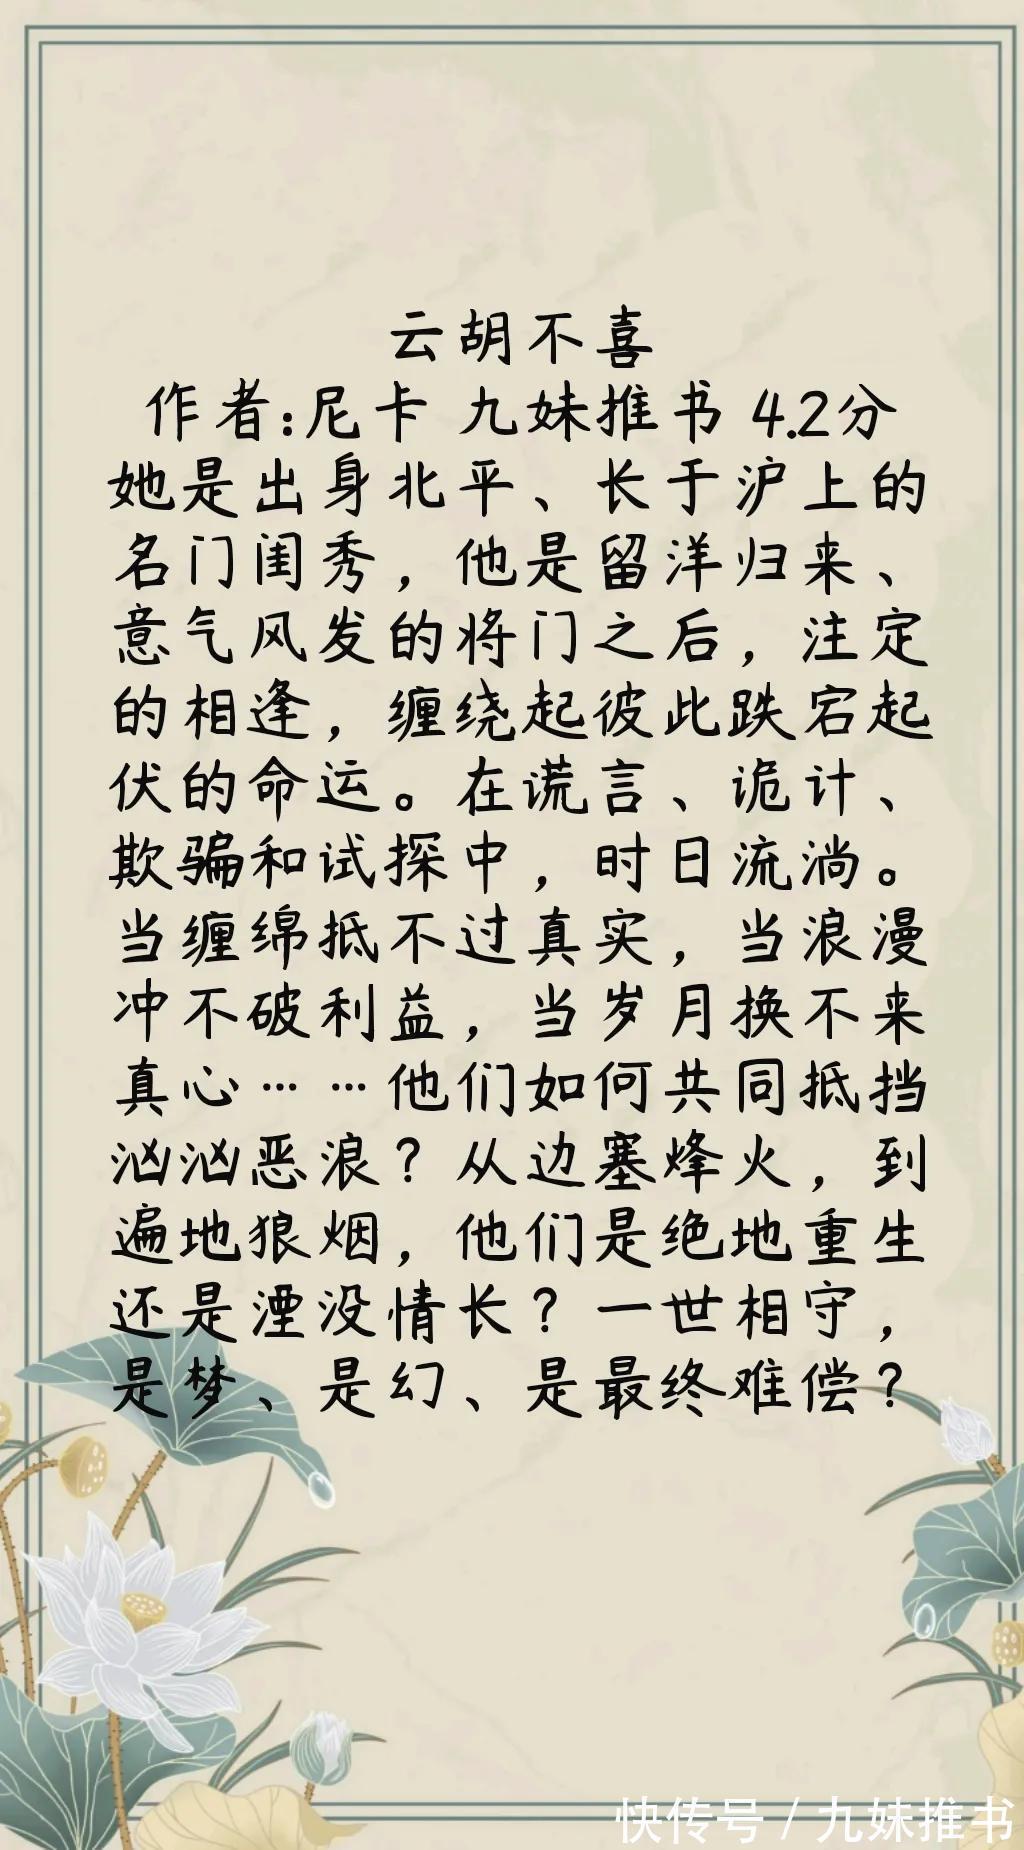 云胡不喜
作者:尼卡 九妹推书 4.2分
她是出身北平、长于沪上的
名门闺秀，他是留洋归来、
意气风发的将门之后，注定
的相逢，缠绕起彼此跌宕起
伏的命运。在谎言、诡计、
欺骗和试探中，时日流淌。
当缠绵抵不过真实，当浪漫
冲不破利益，当岁月换不来
真心……他们如何共同抵挡
汹汹恶浪？从边塞烽火，到
遍地狼烟，他们是绝地重生
还是湮没情长？一世相守，
是梦、是幻、是最终难偿？
快传号/九妹推书